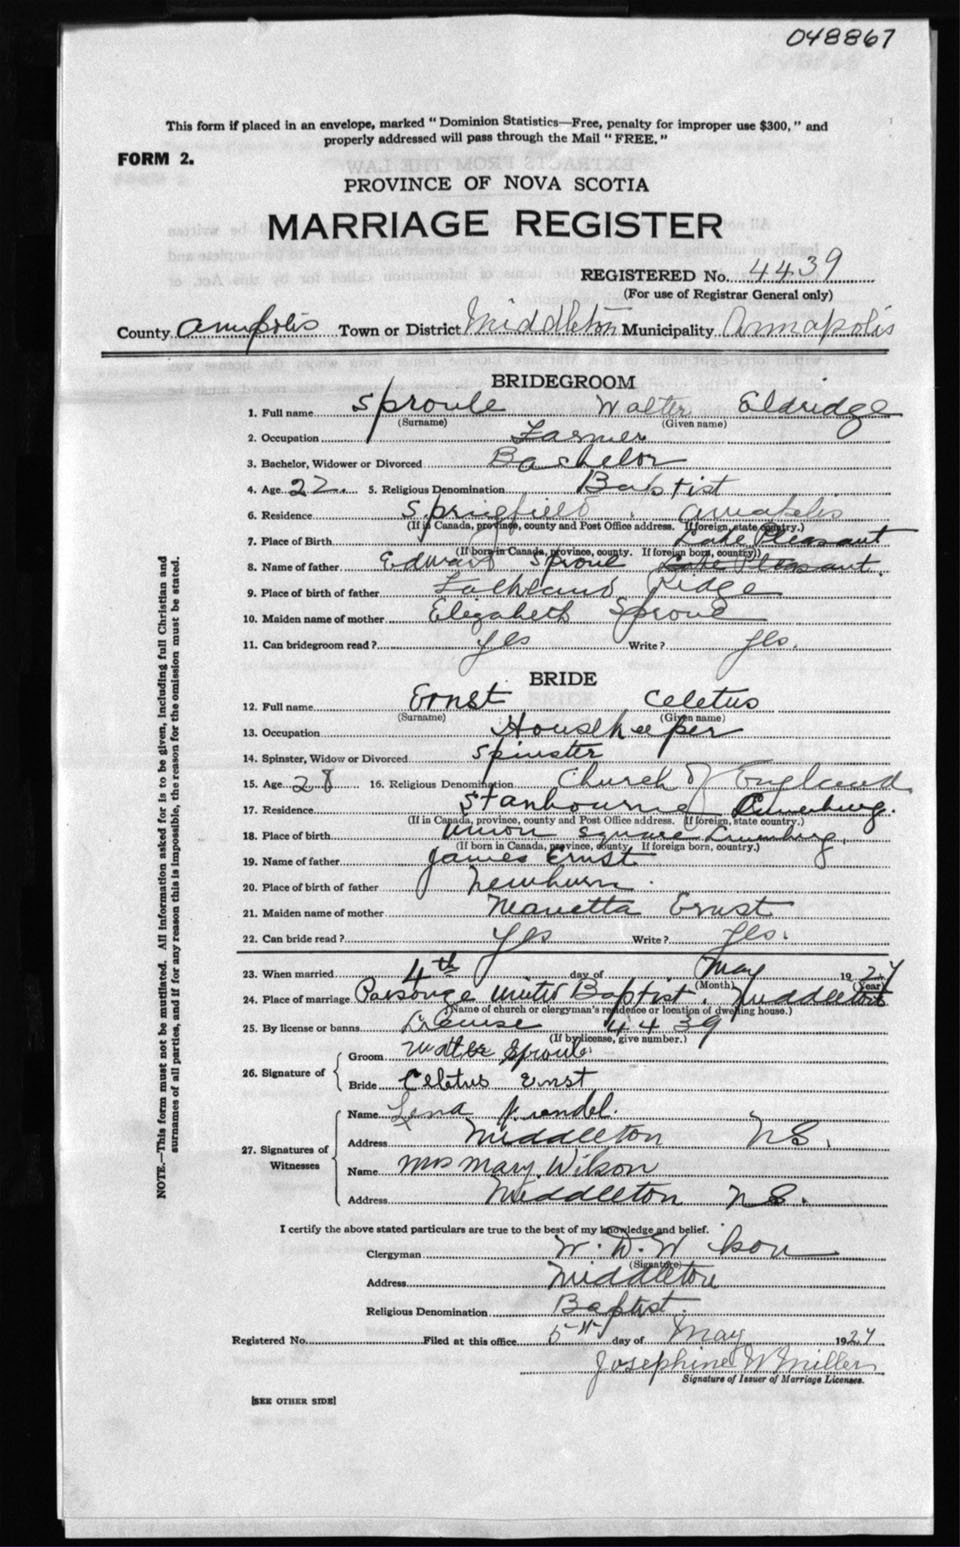 048867
This form if placed in an envelope, marked "Dominion Statistics—Free, penalty for improper use $300," and
properly addressed will pass through the Mail "FREE."
FORM 2.
PROVINCE OF NOVA SCOTIA
MARRIAGE REGISTER
REGISTERED No. 4439
(For use of Registrar General only)
County Annapolis Town or District Middleton Municipality Annapolis
BRIDEGROOM
1. Full name Sproule Walter Eldridge
(Surname) (Given name)
2. Occupation Farmer
3. Bachelor, Widower or Divorced Bachelor
4. Age 22 5. Religious Denomination Baptist
6. Residence Springfield, Annapolis
(If in Canada, province, county and Post Office address. If foreign, state country.)
7. Place of Birth Lake Pleasant
(If born in Canada, province, county. If foreign born, country)
8. Name of father Edward Sproul Lake Pleasant
9. Place of birth of father Falkland Ridge
10. Maiden name of mother Elizabeth Sproul
11. Can bridegroom read? Yes Write? Yes.
BRIDE
12. Full name Ernst Celetus
(Surname) (Given name)
13. Occupation Housekeeper
14. Spinster, Widow or Divorced Spinster
15. Age 28 16. Religious Denomination Church of England
17. Residence Stanbourne Lunenburg.
(If in Canada, province, county and Post Office address. If foreign, state country.)
18. Place of birth Union Square Lunenburg
(If born in Canada, province, county. If foreign born, country.)
19. Name of father James Ernst
20. Place of birth of father Newburn.
21. Maiden name of mother Marietta Ernst
22. Can bride read? Yes Write? Yes.
23. When married 4th day of May 1927
(Month) (Year)
24. Place of marriage Parsonge United Baptist, Middleton
(Name of church or clergyman's residence or location of dwelling house.)
25. By license or banns License 4439
(If by license, give number.)
26. Signature of
Groom Walter Sproule
Bride Celetus Ernst
27. Signatures of Witnesses
Name Lena
Address Middleton N.S.
Name Mrs Mary Wilson
Address Middleton N.S.
I certify the above stated particulars are true to the best of my knowledge and belief.
Clergyman W. D. Wilson
(Signature)
Address Middleton
Religious Denomination Baptist.
Registered No. Filed at this office 5th day of May 1927
Josephine W Miller
Signature of Issuer of Marriage Licenses.
[SEE OTHER SIDE]
NOTE.—This form must not be mutilated. All information asked for is to be given, including full Christian and
surnames of all parties, and if for any reason this is impossible, the reason for the omission must be stated.